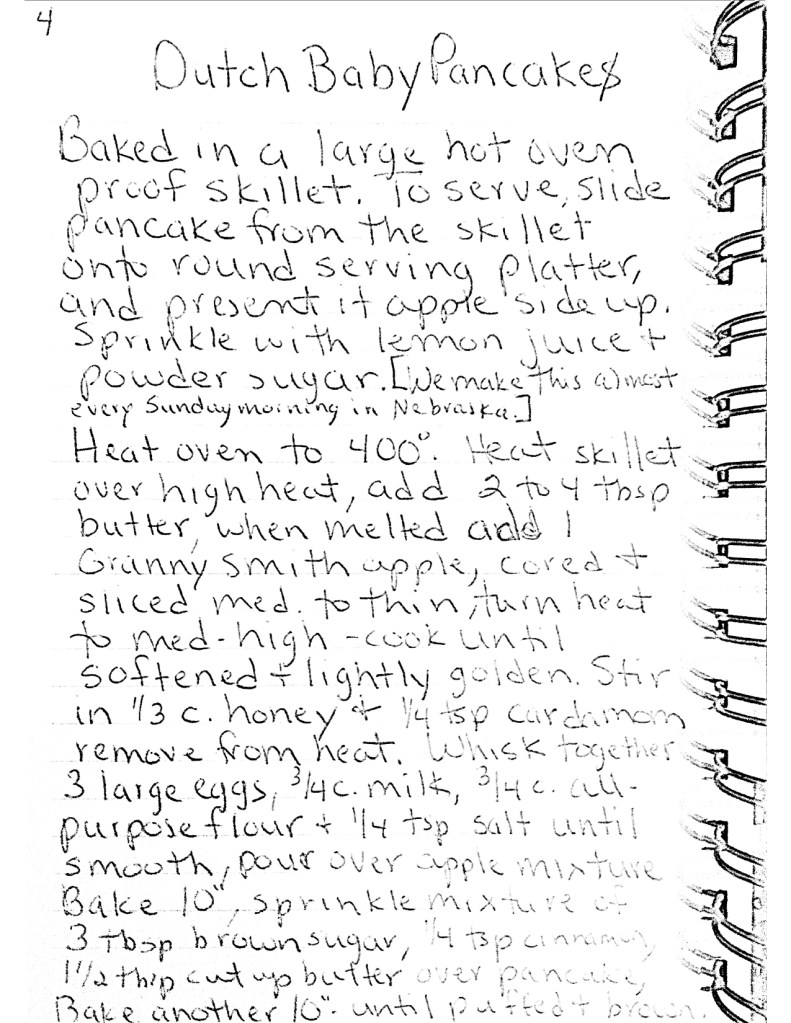 4
Dutch Baby Pancakes
Baked in a large hot oven
proof skillet. To serve, slide
pancake from the skillet
onto round serving platter,
and present it apple side up.
Sprinkle with lemon juice +
powder sugar. [We make this almost
every Sunday morning in Nebraska.]
Heat oven to 400°. Heat skillet
over high heat, add 2 to 4 tbsp
butter, when melted add 1
Granny Smith apple, cored +
sliced med. to thin, turn heat
to med-high - cook until
softened + lightly golden. Stir
in 1/3 c. honey + 1/4 tsp cardamom
remove from heat. Whisk together
3 large eggs, 3/4 c. milk, 3/4 c. all-
purpose flour + 1/4 tsp salt until
smooth, pour over apple mixture
Bake 10", sprinkle mixture of
3 tbsp brown sugar, 1/4 tsp cinnamon,
1 1/2 tbsp cut up butter over pancake,
Bake another 10" until puffed + brown.